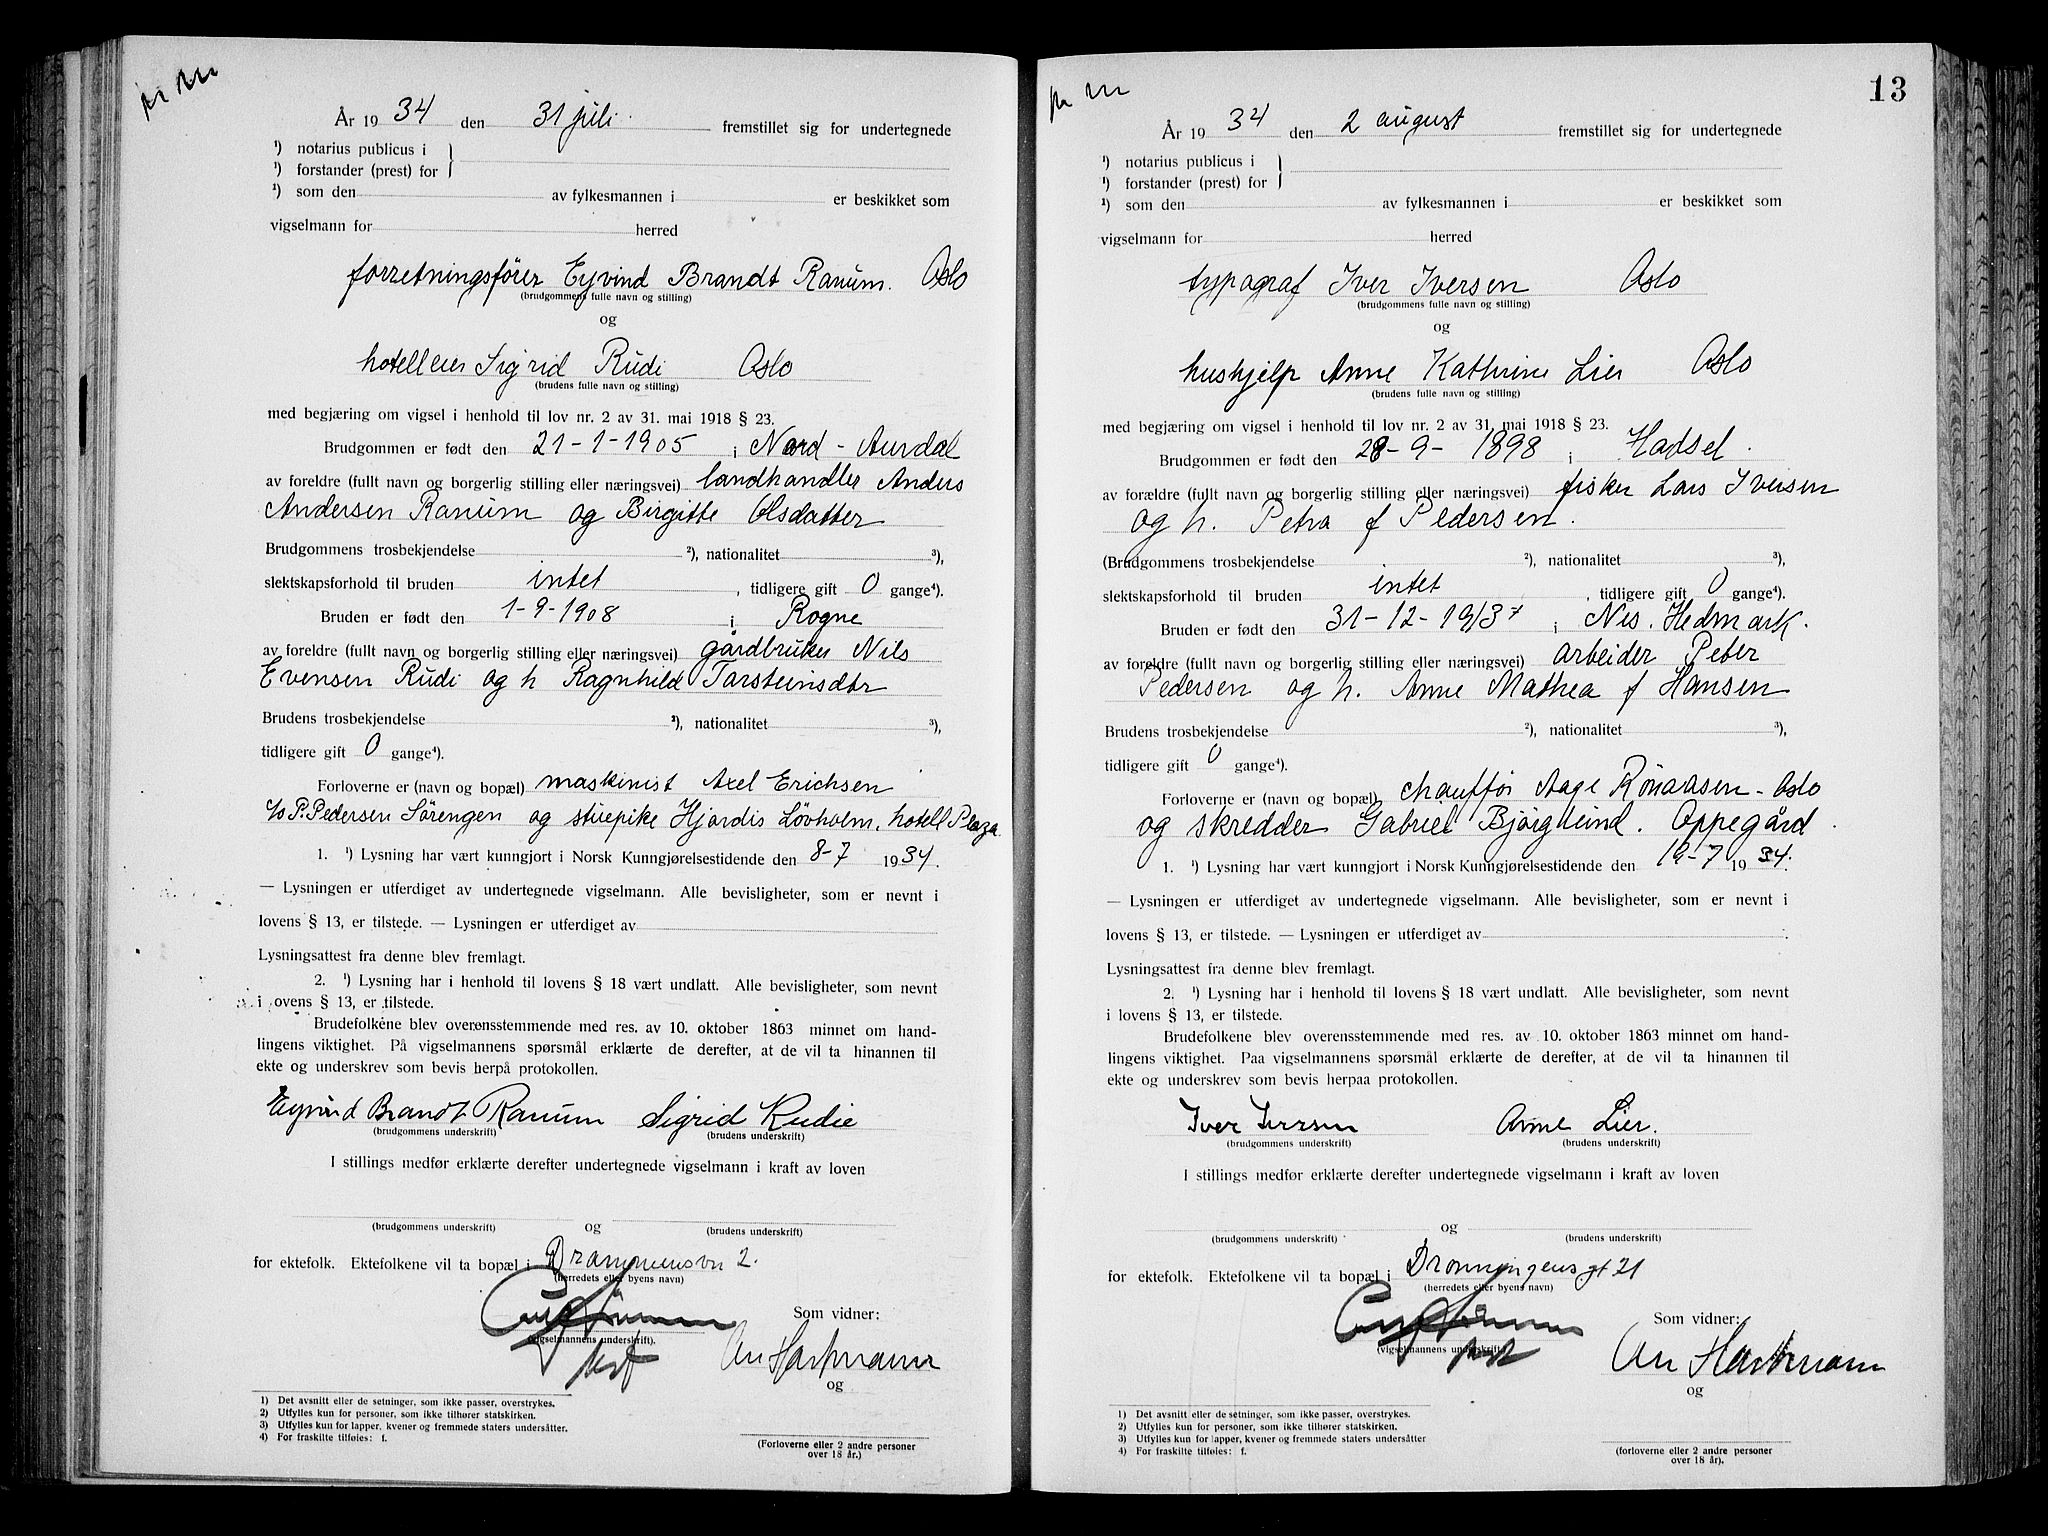 År 19 34 den 31 juli fremstillet sig for undertegnede
¹) notarius publicus i
¹) forstander (prest) for
¹) som den av fylkesmannen i er beskikket som
vigselmann for herred
forretningsfører Eyvind Brandt Ranum. Oslo
(brudgommens fulle navn og stilling)
og
hotelleier Sigrid Rudi Oslo
(brudens fulle navn og stilling)
med begjæring om vigsel i henhold til lov nr. 2 av 31. mai 1918 § 23.
Brudgommen er født den 21-1-1905 i Nord-Aurdal
av foreldre (fullt navn og borgerlig stilling eller næringsvei) landhandler Anders
Andersen Ranum og Birgitte Olsdatter
Brudgommens trosbekjendelse ²), nationalitet ³),
slektskapsforhold til bruden intet, tidligere gift 0 gange⁴).
Bruden er født den 1-9-1908 i Rogne
av foreldre (fullt navn og borgerlig stilling eller næringsvei) gårdbruker Nils
Evensen Rudi og h Ragnhild Torsteinsdtr
Brudens trosbekjendelse ²), nationalitet ³),
tidligere gift 0 gange⁴).
Forloverne er (navn og bopæl) maskinist Axel Erichsen
P. Pedersen Sörengen og stuepike Hjordis Løvholm, hotell Plaza
1. ¹) Lysning har vært kunngjort i Norsk Kunngjørelsestidende den 8-7 1934.
— Lysningen er utferdiget av undertegnede vigselmann. Alle bevisligheter, som er nevnt i
lovens § 13, er tilstede. — Lysningen er utferdiget av
Lysningsattest fra denne blev fremlagt.
2. ¹) Lysning har i henhold til lovens § 18 vært undlatt. Alle bevisligheter, som nevnt
i lovens § 13, er tilstede.
Brudefolkene blev overensstemmende med res. av 10. oktober 1863 minnet om hand-
lingens viktighet. På vigselmannens spørsmål erklærte de derefter, at de vil ta hinannen til
ekte og underskrev som bevis herpå protokollen.
Eyvind Brandt Ranum Sigrid Rudie
(brudgommens underskrift) (brudens underskrift)
I stillings medfør erklærte derefter undertegnede vigselmann i kraft av loven
og
(brudgommens underskrift) (brudens underskrift)
for ektefolk. Ektefolkene vil ta bopæl i Drammensvn 2.
(herredets eller byens navn)
Som vidner:
(vigselmannens underskrift).
Hartmann
og
1) Det avsnitt eller de setninger, som ikke passer, overstrykes.
2) Utfylles kun for personer, som ikke tilhører statskirken.
3) Utfylles kun for lapper, kvener og fremmede staters undersåtter.
4) For fraskilte tilføies: f.
(Forloverne eller 2 andre personer
over 18 år.)
13
År 19 34 den 2 august fremstillet sig for undertegnede
¹) notarius publicus i
¹) forstander (prest) for
¹) som den av fylkesmannen i er beskikket som
vigselmann for herred
typograf Iver Iversen Oslo
(brudgommens fulle navn og stilling)
og
hushjelp Anne Kathrine Lier Oslo
(brudens fulle navn og stilling)
med begjæring om vigsel i henhold til lov nr. 2 av 31. mai 1918 § 23.
Brudgommen er født den 28-9-1898 i Hadsel.
av forældre (fullt navn og borgerlig stilling eller næringsvei) fisker Lars Iversen
og h. Petra f Pedersen.
(Brudgommens trosbekjendelse ²), nationalitet ³),
slektskapsforhold til bruden intet, tidligere gift 0 gange⁴).
Bruden er født den 31-12-1913 i Nes. Hedmark.
av foreldre (fullt navn og borgerlig stilling eller næringsvei) arbeider Peter
Pedersen og h. Anne Mathea f Hansen
Brudens trosbekjendelse ²), nationalitet ³),
tidligere gift 0 gange⁴).
Forloverne er (navn og bopæl) chauffør Aage Rønaasen - Oslo
og skredder Gabriel Bjørglund. Oppegård.
1. ¹) Lysning har vært kunngjort i Norsk Kunngjørelsestidende den 19-7 1934.
— Lysningen er utferdiget av undertegnede vigselmann. Alle bevisligheter, som er nevnt i
lovens § 13, er tilstede. — Lysningen er utferdiget av
Lysningsattest fra denne blev fremlagt.
2. ¹) Lysning har i henhold til lovens § 18 vært undlatt. Alle bevisligheter, som nevnt
i lovens § 13, er tilstede.
Brudefolkene blev overensstemmende med res. av 10. oktober 1863 minnet om hand-
lingens viktighet. Paa vigselmannens spørsmål erklærte de derefter, at de vil ta hinannen til
ekte og underskrev som bevis herpaa protokollen.
Iver Iversen Anne Lier.
(brudgommens underskrift) (brudens underskrift)
I stillings medfør erklærte derefter undertegnede vigselmann i kraft av loven
og
(brudgommens underskrift) (brudens underskrift)
for ektefolk. Ektefolkene vil ta bopæl i Dronningensgt 21
(herredets eller byens navn)
Som vidner:
(vigselmannens underskrift)
Hartmann
og
1) Det avsnitt eller de setninger, som ikke passer, overstrykes.
2) Utfylles kun for personer, som ikke tilhører statskirken.
3) Utfylles kun for lapper, kvener og fremmede staters undersåtter
4) For fraskilte tilføies: f.
(forloverne eller 2 andre personer
over 18 år).